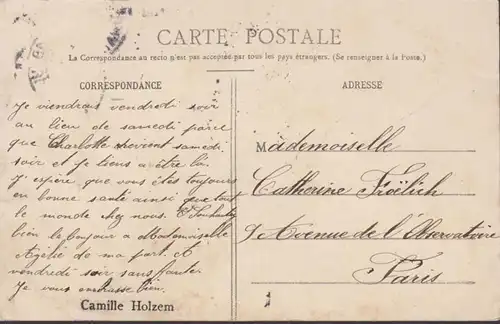 CARTE POSTALE
La Correspondance au recto n'est pas acceptée par tous les pays étrangers. (Se renseigner à la Poste.)
CORRESPONDANCE
Je viendrais vendredi soir
au lieu de samedi parce
que Charlotte revient samedi
soir et je tiens a être là.
J'espère que vous êtes toujours
en bonne santé ainsi que tout
le monde chez nous. Souhaitez
bien le bonjour a Mademoiselle
de ma part. A
vendredi soir sans faute.
Je vous embrasse bien.
Camille Holzem
ADRESSE
Mademoiselle
Catherine Froëlich
9 Avenue de l'Observatoire
Paris